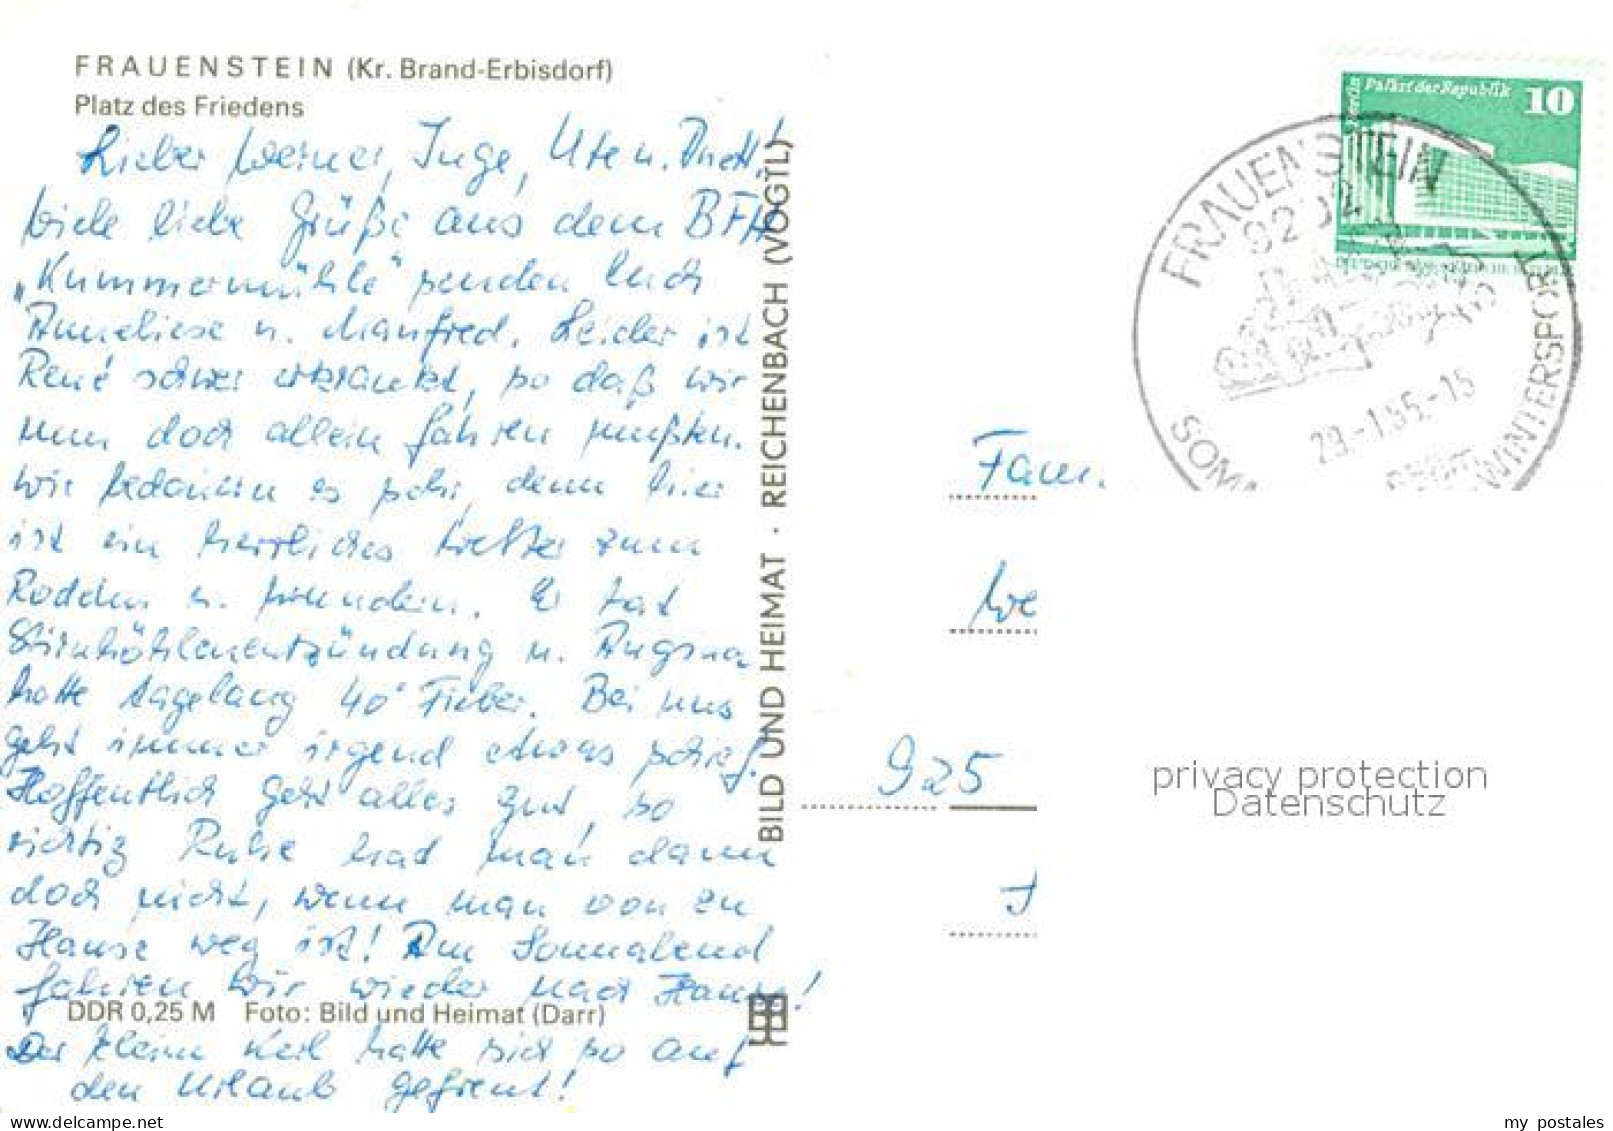 FRAUENSTEIN (Kr. Brand-Erbisdorf)
Platz des Friedens
Lieber Werner, Inge, Ute u. Anett!
Viele liebe Grüße aus dem BFH
„Kummermühle" senden Euch
Anneliese u. Manfred. Leider ist
René schwer erkrankt, so daß wir
nun doch allein fahren mußten.
Wir bedauern es sehr, denn hier
ist ein herrliches Wetter zum
Rodeln u. Wandern. Er hat
Stirnhöhlenentzündung u. Angina
hatte tagelang 40° Fieber. Bei uns
geht immer irgend etwas schief.
Hoffentlich geht alles gut, so
richtig Ruhe hat man dann
doch nicht, wenn man von zu
Hause weg ist! Am Sonnabend
fahren wir wieder nach Hause!
DDR 0,25 M Foto: Bild und Heimat (Darr)
Der kleine Kerl hatte sich so auf
den Urlaub gefreut!
BILD UND HEIMAT · REICHENBACH (VOGTL)
Berlin Palast der Republik 10
FRAUENSTEIN
29.-1.85.-15
WINTERSPORT
Fam.
We
925
privacy protection
Datenschutz
my postales